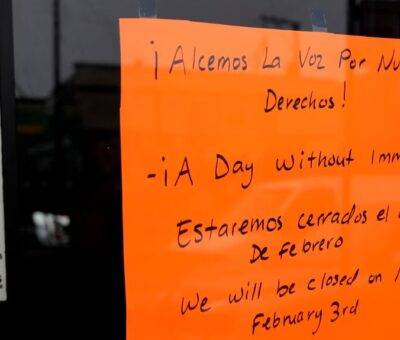 ¡Alcemos La Voz Por Nu
Derechos!
-¡A Day without Imm
Estaremos cerrados el
De febrero
We will be closed on
February 3rd